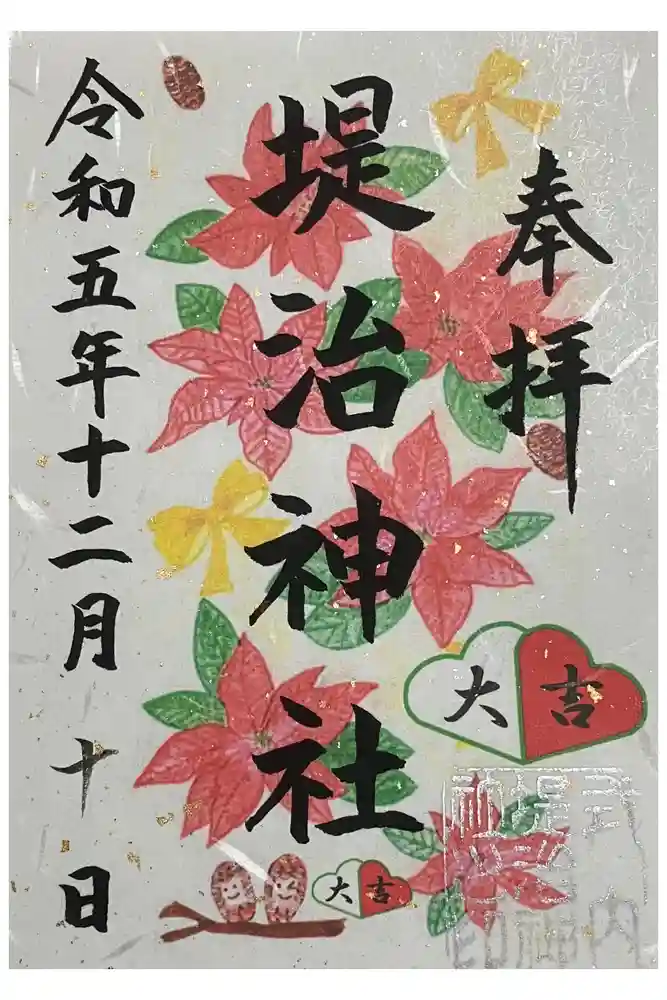 奉拝
堤治神社
令和五年十二月十日
大吉
大吉